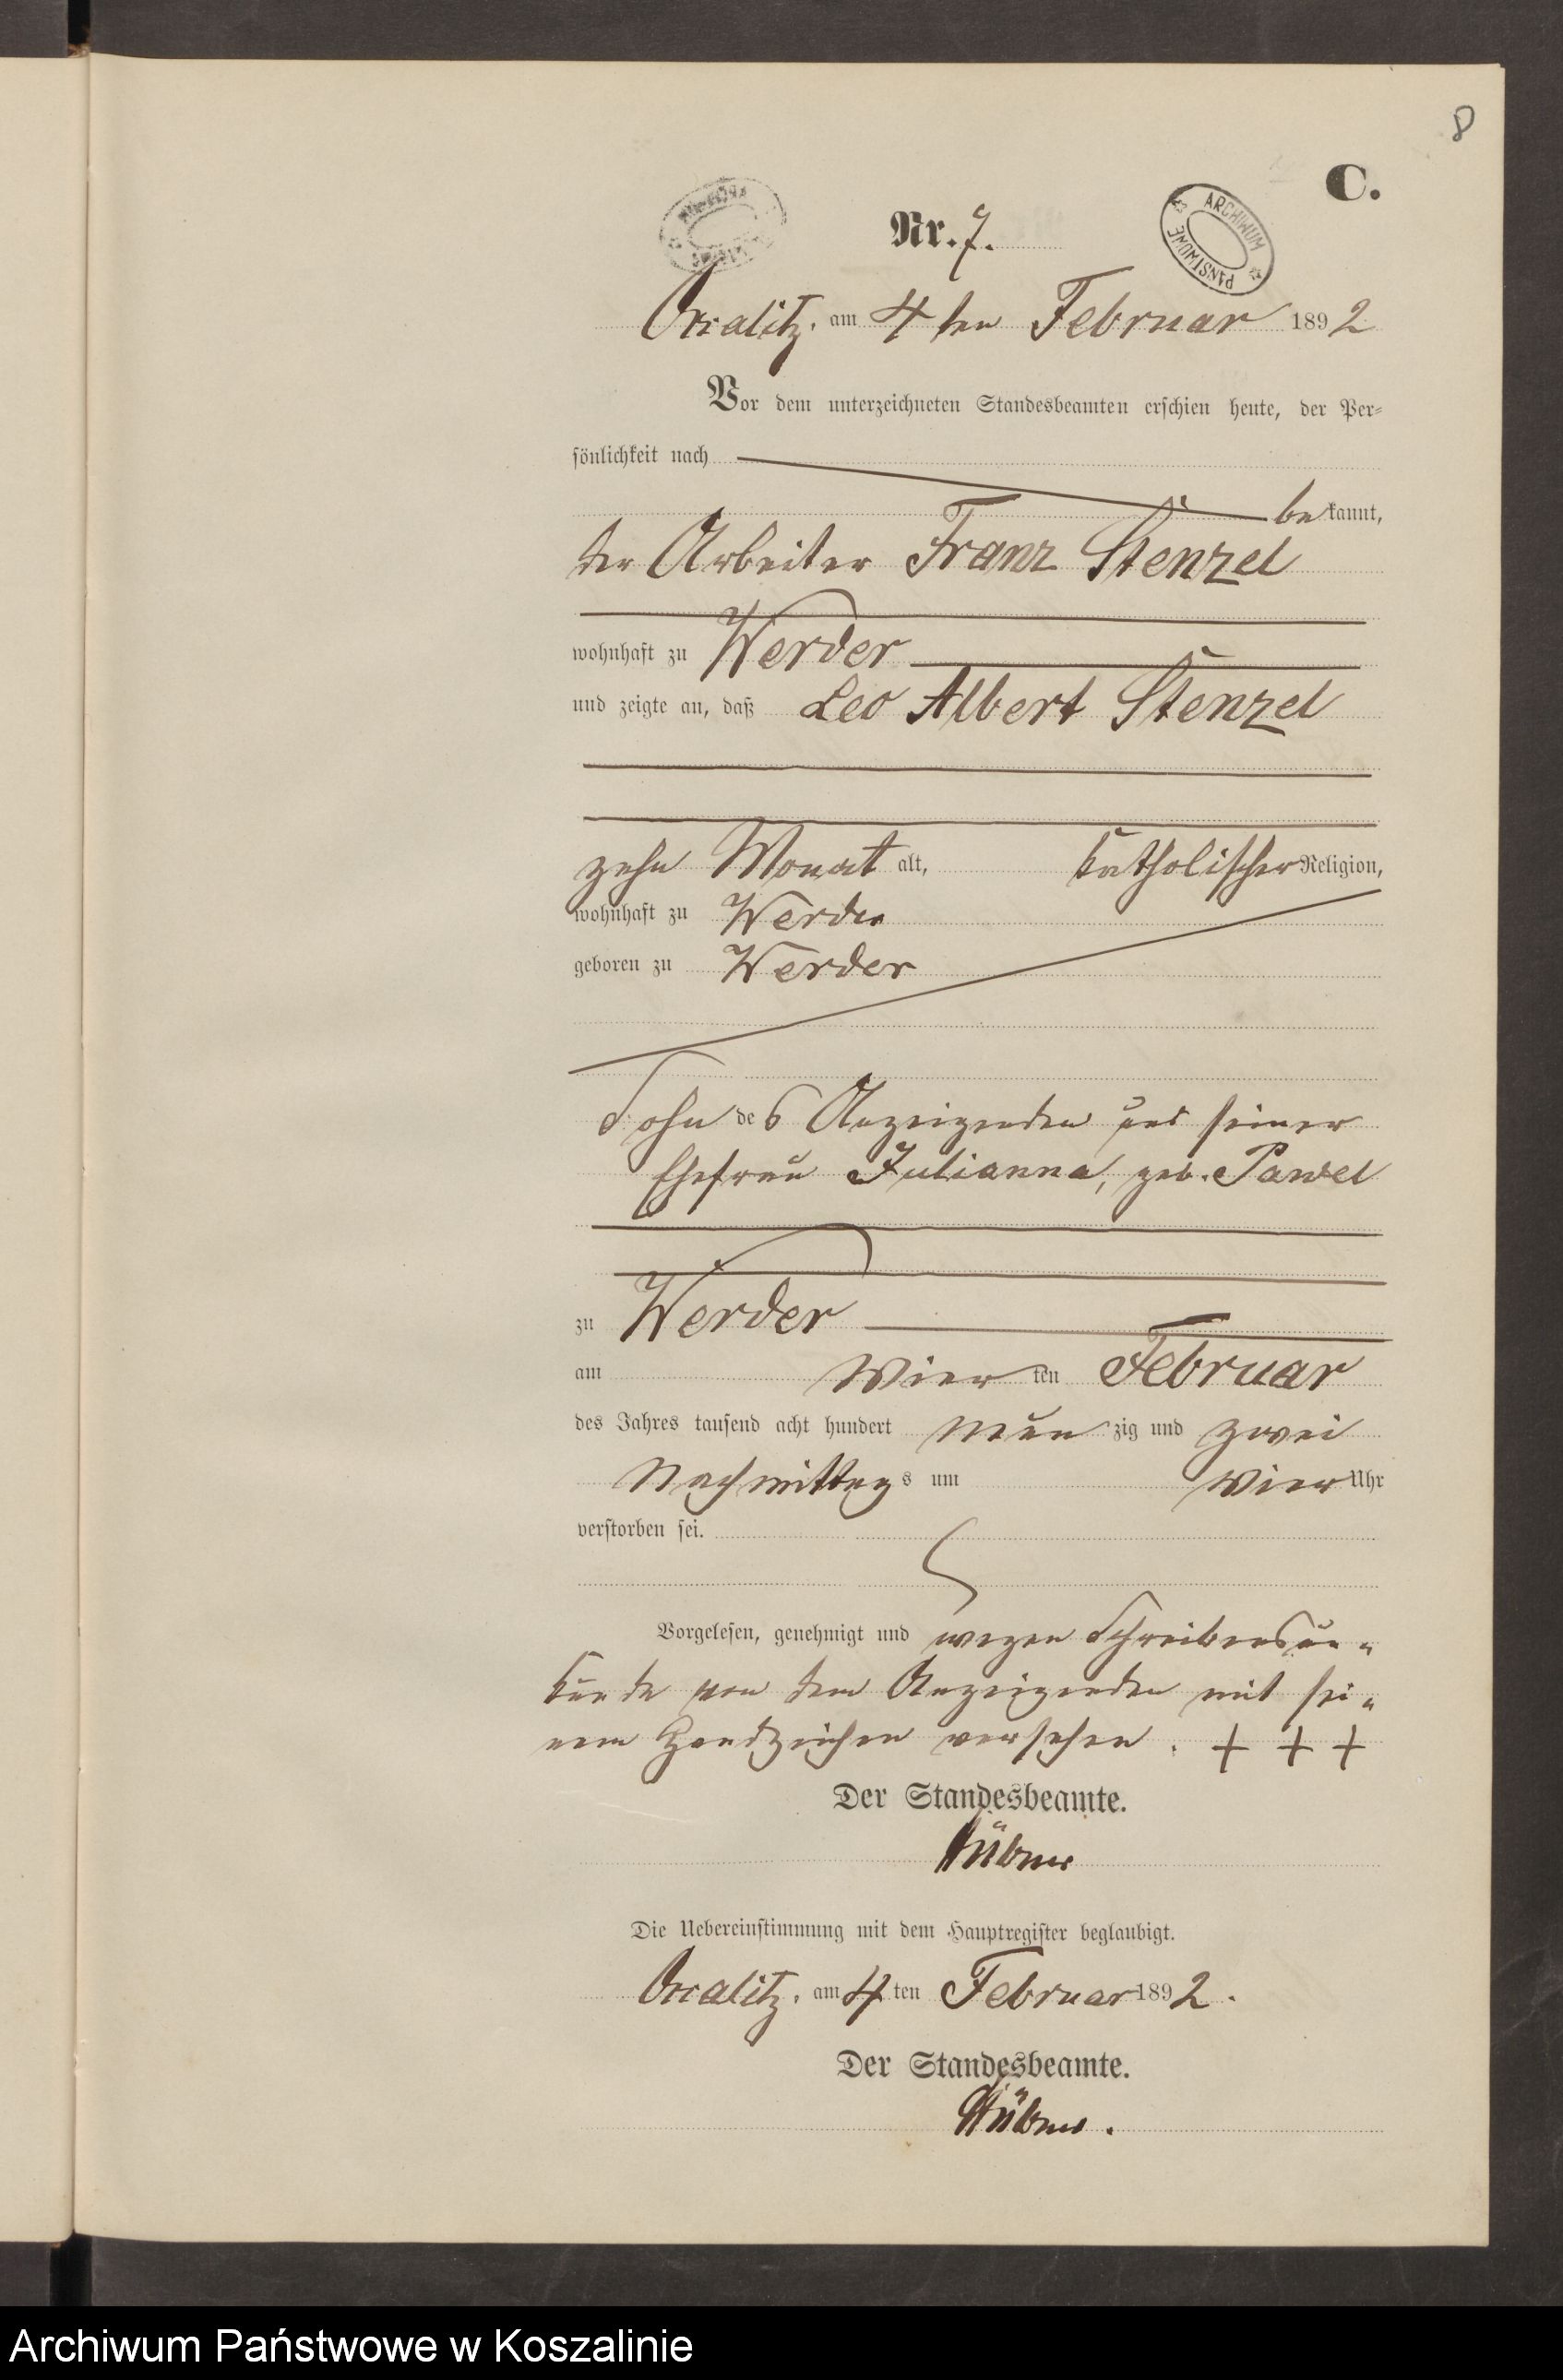 8
C.
ARCHIWUM PAŃSTWOWE
Nr. 7.
Ossalitz. am 4 ten Februar 1892
Vor dem unterzeichneten Standesbeamten erschien heute, der Per-
sönlichkeit nach
be kannt,
der Arbeiter Franz Stenzel
wohnhaft zu Werder
und zeigte an, daß Leo Albert Stenzel
zehn Monat alt, katholischer Religion,
wohnhaft zu Werder
geboren zu Werder
Sohn des Anzeigenden und seiner
Ehefrau Julianna, geb. Pawel
zu Werder
am Vier ten Februar
des Jahres tausend acht hundert neun zig und zwei
Nachmittags um vier Uhr
verstorben sei.
Vorgelesen, genehmigt und wegen Schreibensun-
kunde von dem Anzeigenden mit sei-
nem Handzeichen versehen. + + +
Der Standesbeamte.
Hübner
Die Uebereinstimmung mit dem Hauptregister beglaubigt.
Ossalitz. am 4 ten Februar 1892.
Der Standesbeamte.
Hübner.
Archiwum Państwowe w Koszalinie